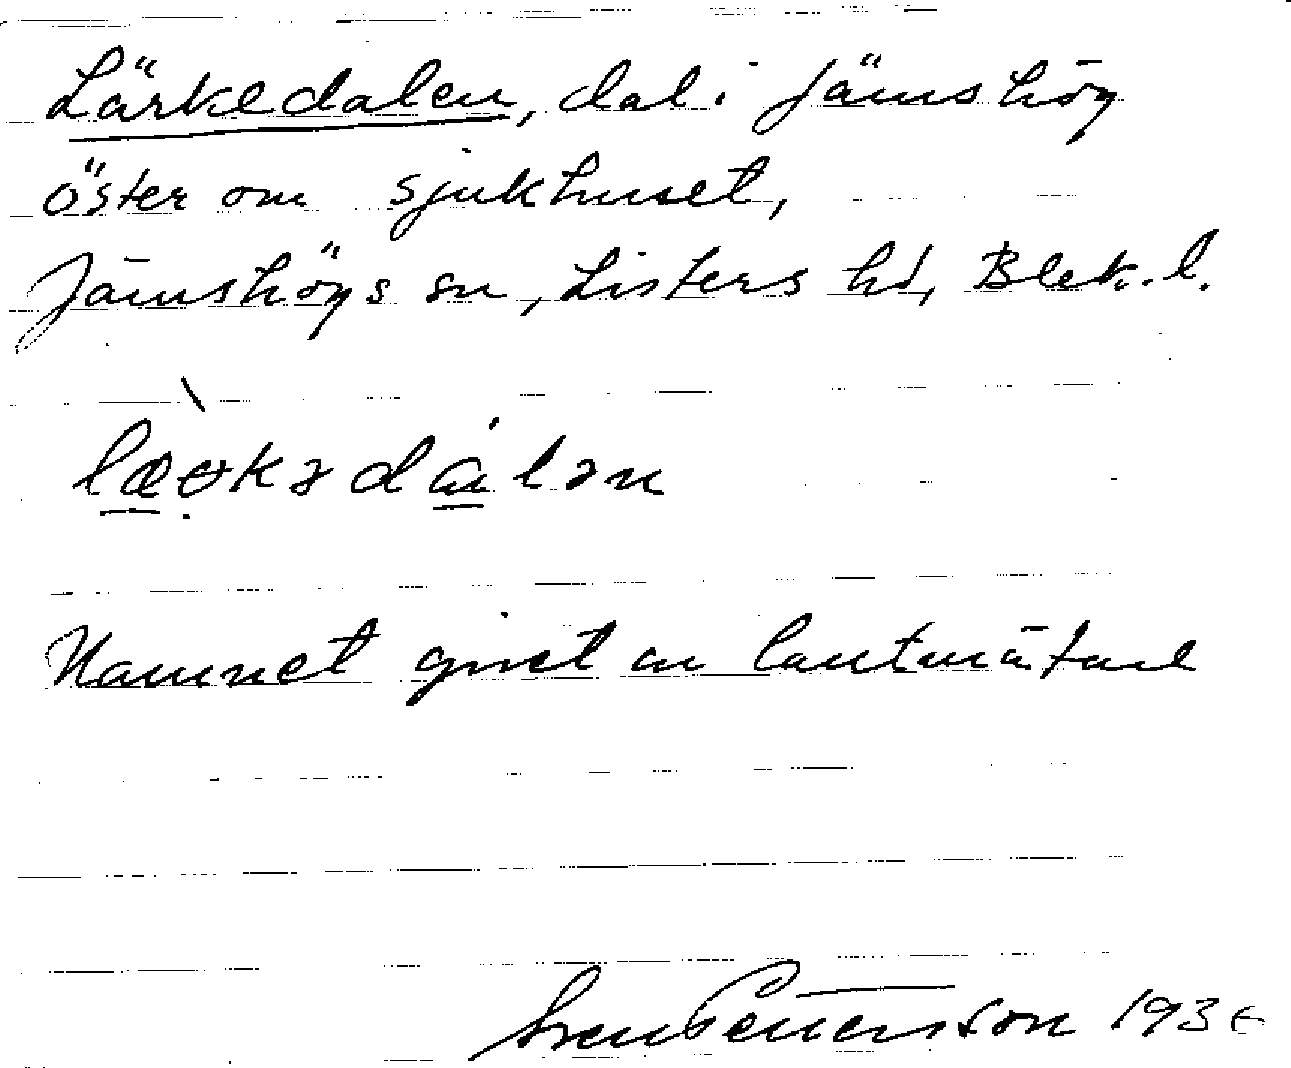 Lärkedalen, dal i Jämshög
öster om sjukhuset,
Jämshögs sn, Listers hd, Blek. l.
Namnet givet av lantmätare
Sven Pettersson 193